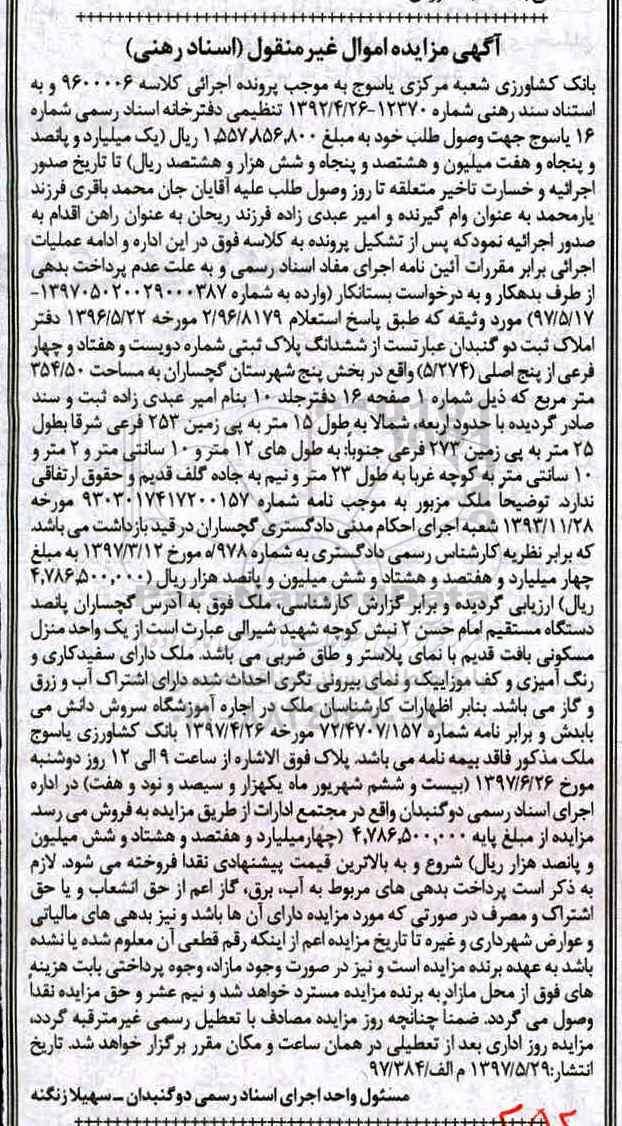 آگهی مزایده اموال غیر منقول (اسناد رهنی)
بانک کشاورزی شعبه مرکزی یاسوج به موجب پرونده اجرائی کلاسه ۹۶۰۰۰۰۶ و به
استناد سند رهنی شماره ۱۲۳۷۰-۱۳۹۲/۴/۲۶ تنظیمی دفترخانه اسناد رسمی شماره
۱۶ یاسوج جهت وصول طلب خود به مبلغ ۱,۵۵۷,۸۵۶,۸۰۰ ریال (یک میلیارد و پانصد
و پنجاه و هفت میلیون و هشتصد و پنجاه و شش هزار و هشتصد ریال) تا تاریخ صدور
اجرائیه و خسارت تاخیر متعلقه تا روز وصول طلب علیه آقایان جان محمد باقری فرزند
یارمحمد به عنوان وام گیرنده و امیر عبدی زاده فرزند ریحان به عنوان راهن اقدام به
صدور اجرائیه نمودکه پس از تشکیل پرونده به کلاسه فوق در این اداره و ادامه عملیات
اجرائی برابر مقررات آئین نامه اجرای مفاد اسناد رسمی و به علت عدم پرداخت بدهی
از طرف بدهکار و به درخواست بستانکار (وارده به شماره ۱۳۹۷۰۵۰۲۰۰۲۹۰۰۰۳۸۷-
۹۷/۵/۱۷) مورد وثیقه که طبق پاسخ استعلام ۲/۹۶/۸۱۷۹ مورخه ۱۳۹۶/۵/۲۲ دفتر
املاک ثبت دو گنبدان عبارتست از ششدانگ پلاک ثبتی شماره دویست و هفتاد و چهار
فرعی از پنج اصلی (۵/۲۷۴) واقع در بخش پنج شهرستان گچساران به مساحت ۳۵۴/۵۰
متر مربع که ذیل شماره ۱ صفحه ۱۶ دفترجلد ۱۰ بنام امیر عبدی زاده ثبت و سند
صادر گردیده با حدود اربعه، شمالا به طول ۱۵ متر به پی زمین ۲۵۳ فرعی شرقا بطول
۲۵ متر به پی زمین ۲۷۳ فرعی جنوباً: به طول های ۱۲ متر و ۱۰ سانتی متر و ۲ متر و
۱۰ سانتی متر به کوچه غربا به طول ۲۳ متر و نیم به جاده گلف قدیم و حقوق ارتفاقی
ندارد. توضیحاً ملک مزبور به موجب نامه شماره ۹۳۰۳۰۱۷۴۱۷۲۰۰۱۵۷ مورخه
۱۳۹۳/۱۱/۲۸ شعبه اجرای احکام مدنی دادگستری گچساران در قید بازداشت می باشد.
که برابر نظریه کارشناس رسمی دادگستری به شماره ۵/۹۷۸ مورخ ۱۳۹۷/۳/۱۲ به مبلغ
چهار میلیارد و هفتصد و هشتاد و شش میلیون و پانصد هزار ریال (۴,۷۸۶,۵۰۰,۰۰۰
ریال) ارزیابی گردیده و برابر گزارش کارشناسی، ملک فوق به آدرس گچساران پانصد
دستگاه مستقیم امام حسن ۲ نبش کوچه شهید شیرالی عبارت است از یک واحد منزل
مسکونی بافت قدیم با نمای پلاستر و طاق ضربی می باشد. ملک دارای سفیدکاری و
رنگ آمیزی و کف موزاییک و نمای بیرونی نگری احداث شده دارای اشتراک آب و زرق
و گاز می باشد. بنابر اظهارات کارشناسان ملک در اجاره آموزشگاه سروش دانش می
بابدش و برابر نامه شماره ۷۲/۴۷۰۷/۱۵۷ مورخه ۱۳۹۷/۴/۲۶ بانک کشاورزی یاسوج
ملک مذکور فاقد بیمه نامه می باشد. پلاک فوق الاشاره از ساعت ۹ الی ۱۲ روز دوشنبه
مورخ ۱۳۹۷/۶/۲۶ (بیست و ششم شهریور ماه یکهزار و سیصد و نود و هفت) در اداره
اجرای اسناد رسمی دوگنبدان واقع در مجتمع ادارات از طریق مزایده به فروش می رسد.
مزایده از مبلغ پایه ۴,۷۸۶,۵۰۰,۰۰۰ (چهارمیلیارد و هفتصد و هشتاد و شش میلیون
و پانصد هزار ریال) شروع و به بالاترین قیمت پیشنهادی نقدا فروخته می شود. لازم
به ذکر است پرداخت بدهی های مربوط به آب، برق، گاز اعم از حق انشعاب و یا حق
اشتراک و مصرف در صورتی که مورد مزایده دارای آن ها باشد و نیز بدهی های مالیاتی
و عوارض شهرداری و غیره تا تاریخ مزایده اعم از اینکه رقم قطعی آن معلوم شده یا نشده
باشد به عهده برنده مزایده است و نیز در صورت وجود مازاد، وجوه پرداختی بابت هزینه
های فوق از محل مازاد به برنده مزایده مسترد خواهد شد و نیم عشر و حق مزایده نقدا
وصول می گردد. ضمناً چنانچه روز مزایده مصادف با تعطیل رسمی غیرمترقبه گردد،
مزایده روز اداری بعد از تعطیلی در همان ساعت و مکان مقرر برگزار خواهد شد. تاریخ
انتشار:۱۳۹۷/۵/۲۹ م الف/۹۷/۳۸۴
مسئول واحد اجرای اسناد رسمی دوگنبدان ــ سهیلا زنگنه